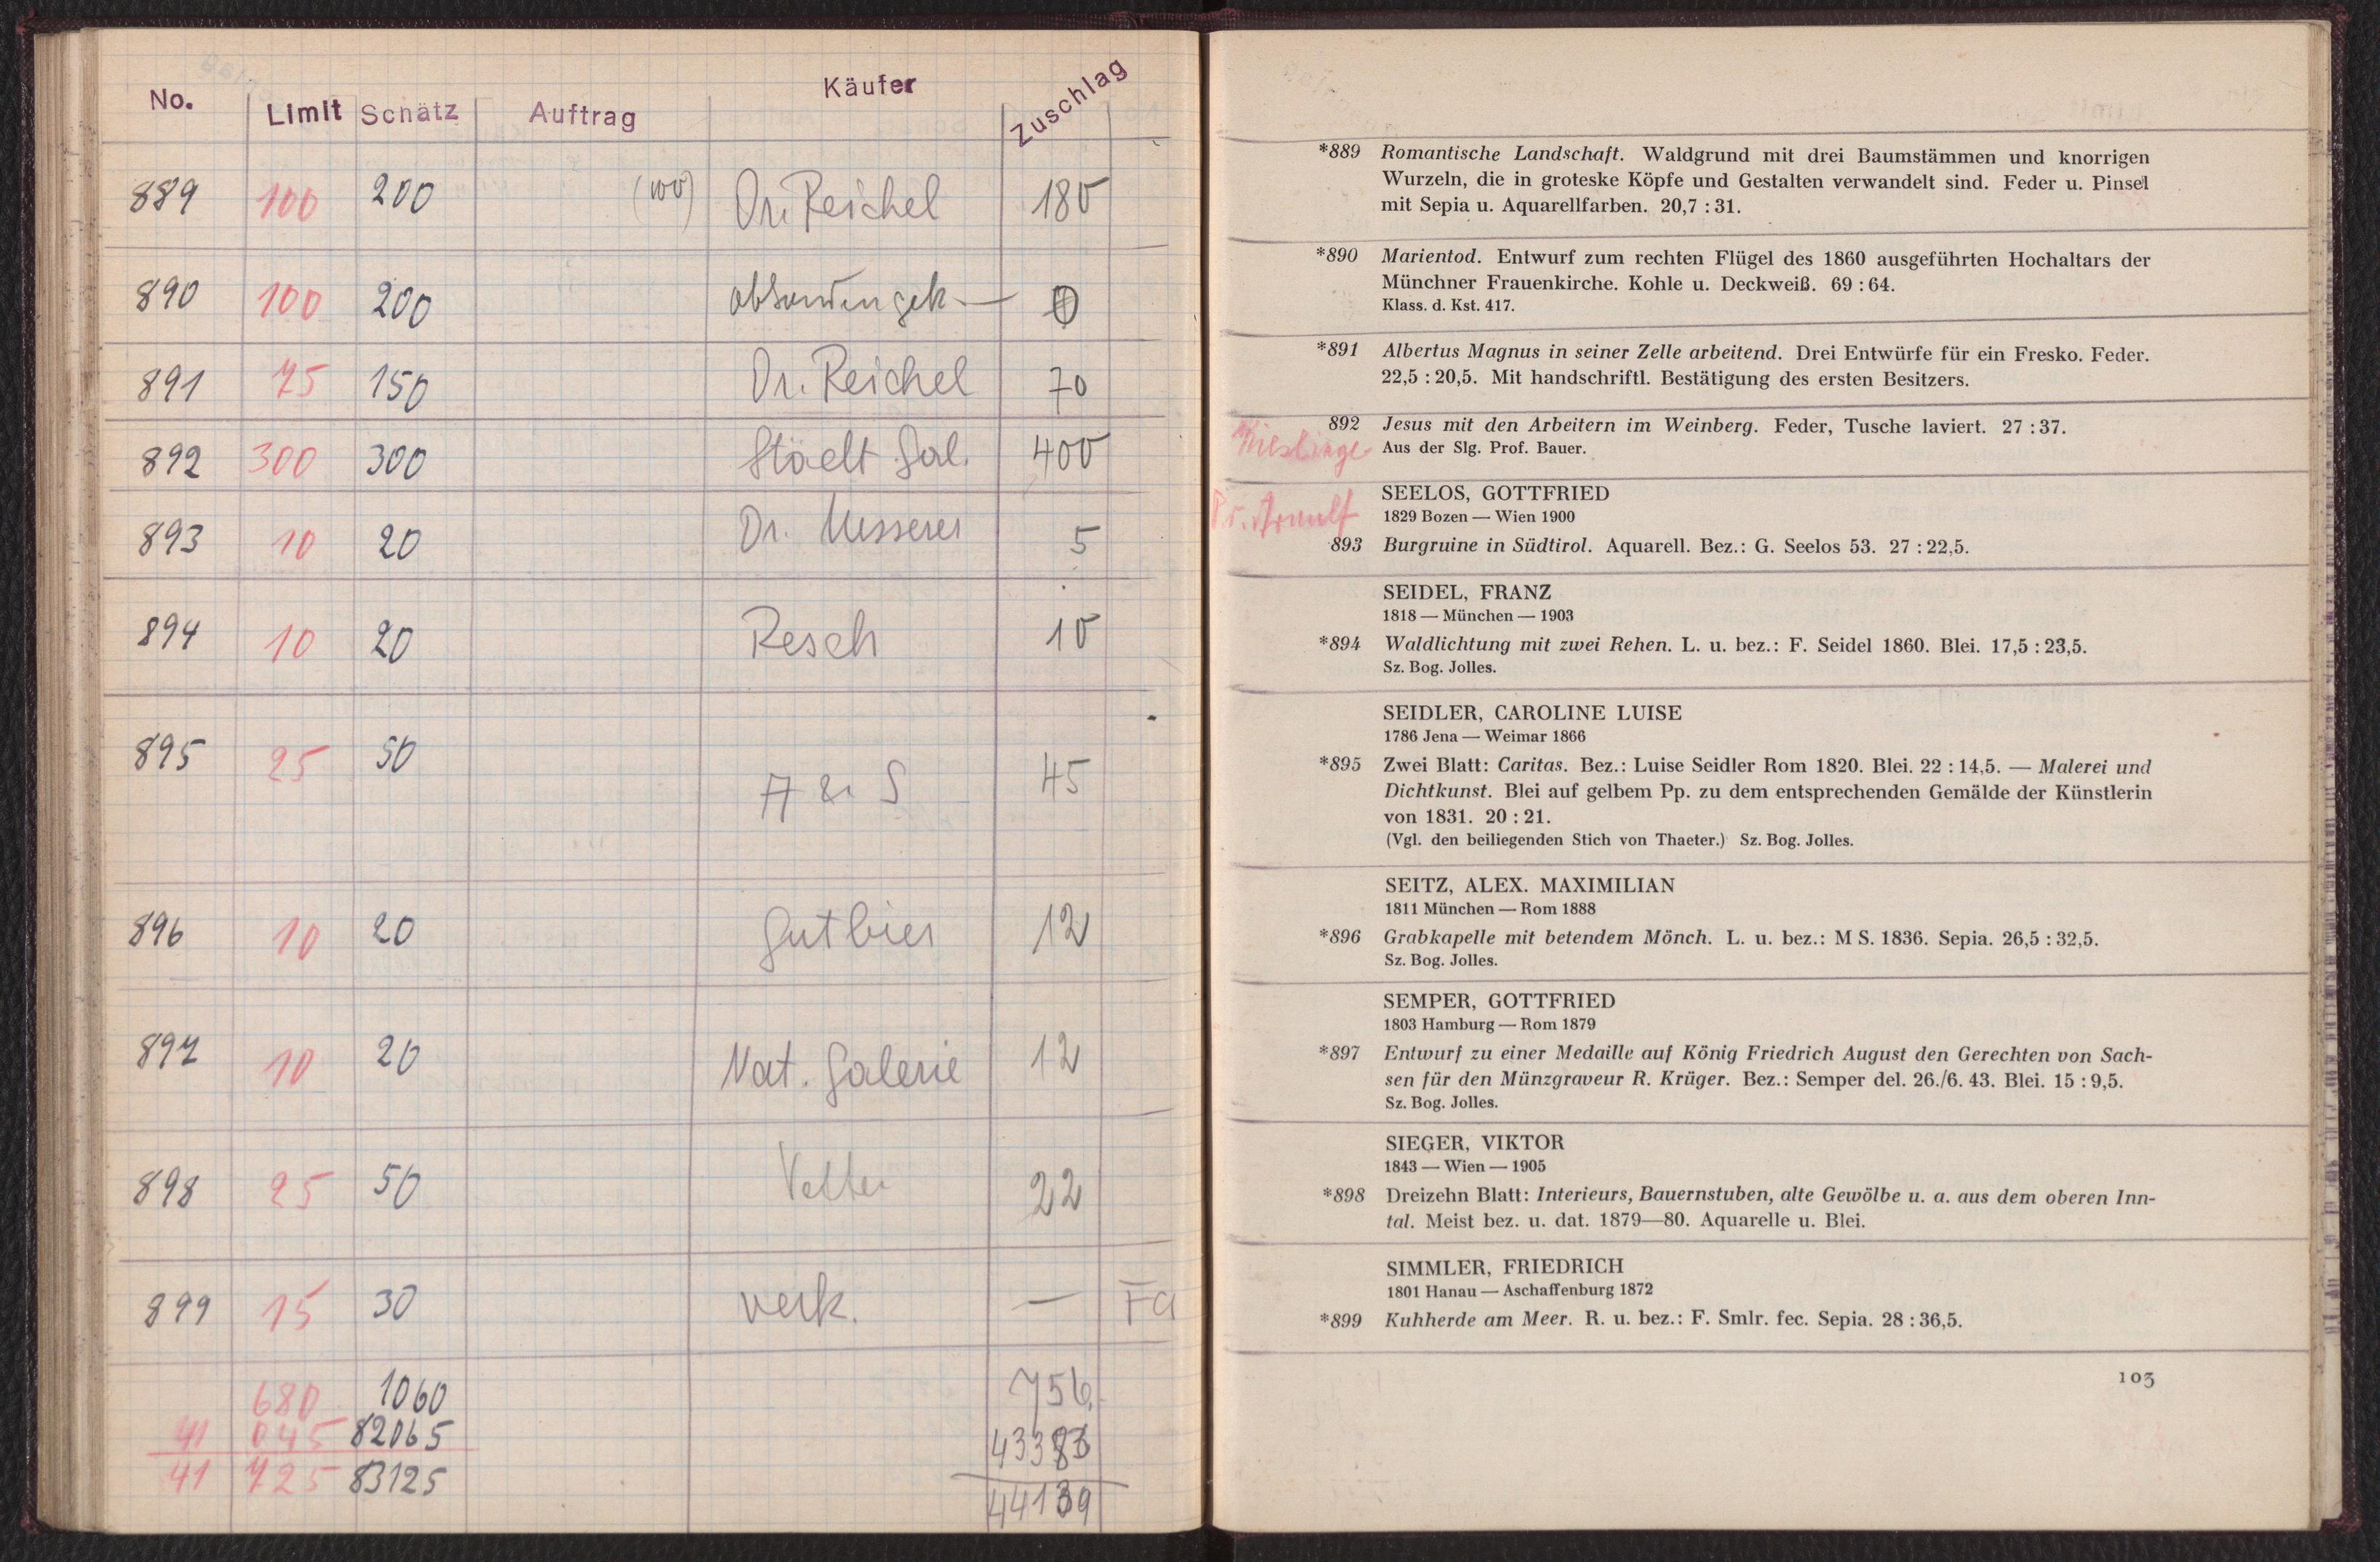 No. Limit Schätz Auftrag Käufer Zuschlag
889 100 200 (100) Dr. Reichel 180
890 100 200 0
891 75 150 Dr. Reichel 70
892 300 300 Städt. Gal. 400
893 10 20 Dr. Messerer 5
894 10 20 Resch 10
895 25 50 A & S 45
896 10 20 Gutbier 12
897 10 20 Nat. Galerie 12
898 25 50 Vetter 22
899 15 30 verk. — Fa
680 1060 756
41 045 82065
41 725 83125 44139
*889 Romantische Landschaft. Waldgrund mit drei Baumstämmen und knorrigen
Wurzeln, die in groteske Köpfe und Gestalten verwandelt sind. Feder u. Pinsel
mit Sepia u. Aquarellfarben. 20,7 : 31.
*890 Marientod. Entwurf zum rechten Flügel des 1860 ausgeführten Hochaltars der
Münchner Frauenkirche. Kohle u. Deckweiß. 69 : 64.
Klass. d. Kst. 417.
*891 Albertus Magnus in seiner Zelle arbeitend. Drei Entwürfe für ein Fresko. Feder.
22,5 : 20,5. Mit handschriftl. Bestätigung des ersten Besitzers.
892 Jesus mit den Arbeitern im Weinberg. Feder, Tusche laviert. 27 : 37.
Aus der Slg. Prof. Bauer.
SEELOS, GOTTFRIED
Dr. Arnulf 1829 Bozen — Wien 1900
893 Burgruine in Südtirol. Aquarell. Bez.: G. Seelos 53. 27 : 22,5.
SEIDEL, FRANZ
1818 — München — 1903
*894 Waldlichtung mit zwei Rehen. L. u. bez.: F. Seidel 1860. Blei. 17,5 : 23,5.
Sz. Bog. Jolles.
SEIDLER, CAROLINE LUISE
1786 Jena — Weimar 1866
*895 Zwei Blatt: Caritas. Bez.: Luise Seidler Rom 1820. Blei. 22 : 14,5. — Malerei und
Dichtkunst. Blei auf gelbem Pp. zu dem entsprechenden Gemälde der Künstlerin
von 1831. 20 : 21.
(Vgl. den beiliegenden Stich von Thaeter.) Sz. Bog. Jolles.
SEITZ, ALEX. MAXIMILIAN
1811 München — Rom 1888
*896 Grabkapelle mit betendem Mönch. L. u. bez.: M S. 1836. Sepia. 26,5 : 32,5.
Sz. Bog. Jolles.
SEMPER, GOTTFRIED
1803 Hamburg — Rom 1879
*897 Entwurf zu einer Medaille auf König Friedrich August den Gerechten von Sach-
sen für den Münzgraveur R. Krüger. Bez.: Semper del. 26./6. 43. Blei. 15 : 9,5.
Sz. Bog. Jolles.
SIEGER, VIKTOR
1843 — Wien — 1905
*898 Dreizehn Blatt: Interieurs, Bauernstuben, alte Gewölbe u. a. aus dem oberen Inn-
tal. Meist bez. u. dat. 1879—80. Aquarelle u. Blei.
SIMMLER, FRIEDRICH
1801 Hanau — Aschaffenburg 1872
*899 Kuhherde am Meer. R. u. bez.: F. Smlr. fec. Sepia. 28 : 36,5.
103